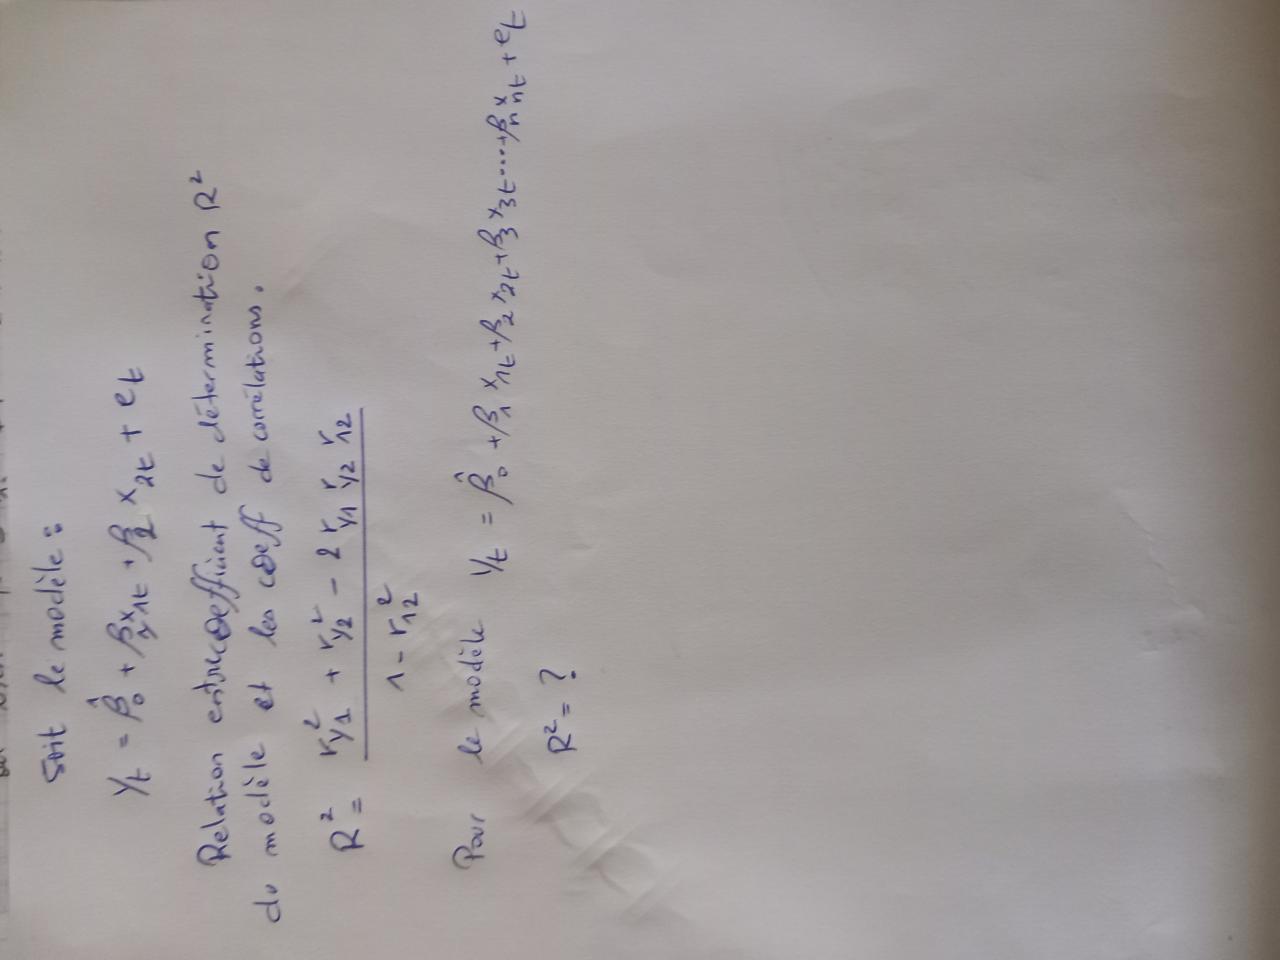 Soit le modèle :
Yt = β̂0 + β̂1 x1t + β̂2 x2t + et
Relation entre coefficient de détermination R²
du modèle et les coeff de corrélations.
R² = (r²y1 + r²y2 - 2 ry1 ry2 r12) / (1 - r²12)
Pour le modèle Yt = β̂0 + β̂1 x1t + β̂2 x2t + β̂3 x3t .... + β̂n xnt + et
R² = ?